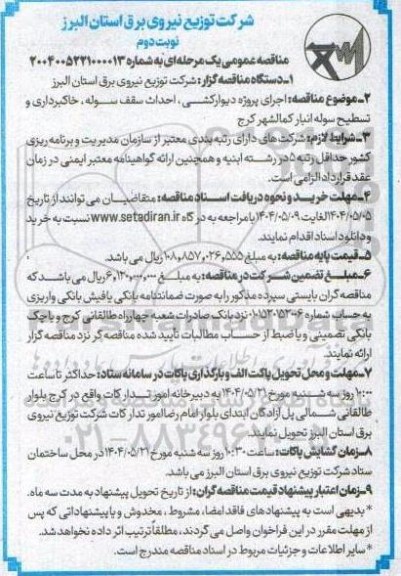 شرکت توزیع نیروی برق استان البرز
نوبت دوم
مناقصه عمومی یک مرحله‌ای به شماره ۲۰۰۴۰۰۵۲۲۱۰۰۰۰۱۳
۱ـ دستگاه مناقصه گزار: شرکت توزیع نیروی برق استان البرز
۲ـ موضوع مناقصه: اجرای پروژه دیوارکشی، احداث سقف سوله، خاکبرداری و
تسطیح سوله انبار کمالشهر کرج
۳ـ شرایط لازم: شرکت‌های دارای رتبه بندی معتبر از سازمان مدیریت و برنامه ریزی
کشور حداقل رتبه ۵ در رشته ابنیه و همچنین ارائه گواهینامه معتبر ایمنی در زمان
عقد قرارداد الزامی است.
۴ـ مهلت خرید و نحوه دریافت اسناد مناقصه: متقاضیان می توانند از تاریخ
۱۴۰۴/۰۵/۰۵ لغایت ۱۴۰۴/۰۵/۰۹ با مراجعه به درگاه www.setadiran.ir نسبت به خرید
و دانلود اسناد اقدام نمایند.
۵ـ قیمت پایه مناقصه: به مبلغ ۱۰۸,۸۵۷,۰۲۶,۵۵۵ ریال می باشد.
۶ـ مبلغ تضمین شرکت در مناقصه: به مبلغ ۶,۱۲۰,۰۰۰,۰۰۰ ریال می باشد که
مناقصه گران بایستی سپرده مذکور را به صورت ضمانتنامه بانکی یا فیش بانکی واریزی
به حساب شماره ۰۱۰۵۲۰۵۲۰۰۶ نزد بانک صادرات شعبه چهارراه طالقانی کرج و یا چک
بانکی تضمینی و یا ضبط از حساب مطالبات تأیید شده مناقصه گر نزد مناقصه گزار
ارائه نمایند.
۷ـ مهلت و محل تحویل پاکت الف و بارگذاری پاکات در سامانه ستاد: حداکثر تا ساعت
۱۰:۰۰ روز سه شنبه مورخ ۱۴۰۴/۰۵/۲۱ به دبیرخانه امور تدارکات واقع در کرج بلوار
طالقانی شمالی پل آزادگان ابتدای بلوار امام رضا امور تدارکات شرکت توزیع نیروی
برق استان البرز تحویل نمایند.
۸ـ زمان گشایش پاکات: ساعت ۱۰:۳۰ روز سه شنبه مورخ ۱۴۰۴/۰۵/۲۱ در محل ساختمان
ستاد شرکت توزیع نیروی برق استان البرز می باشد.
۹ـ زمان اعتبار پیشنهاد قیمت مناقصه گران: از تاریخ تحویل پیشنهاد به مدت سه ماه.
* بدیهی است به پیشنهادهای فاقد امضا، مشروط، مخدوش و یا پیشنهاداتی که پس
از مهلت مقرر در این فراخوان واصل می گردند، مطلقاً ترتیب اثر داده نخواهد شد.
* سایر اطلاعات و جزئیات مربوط در اسناد مناقصه مندرج است.